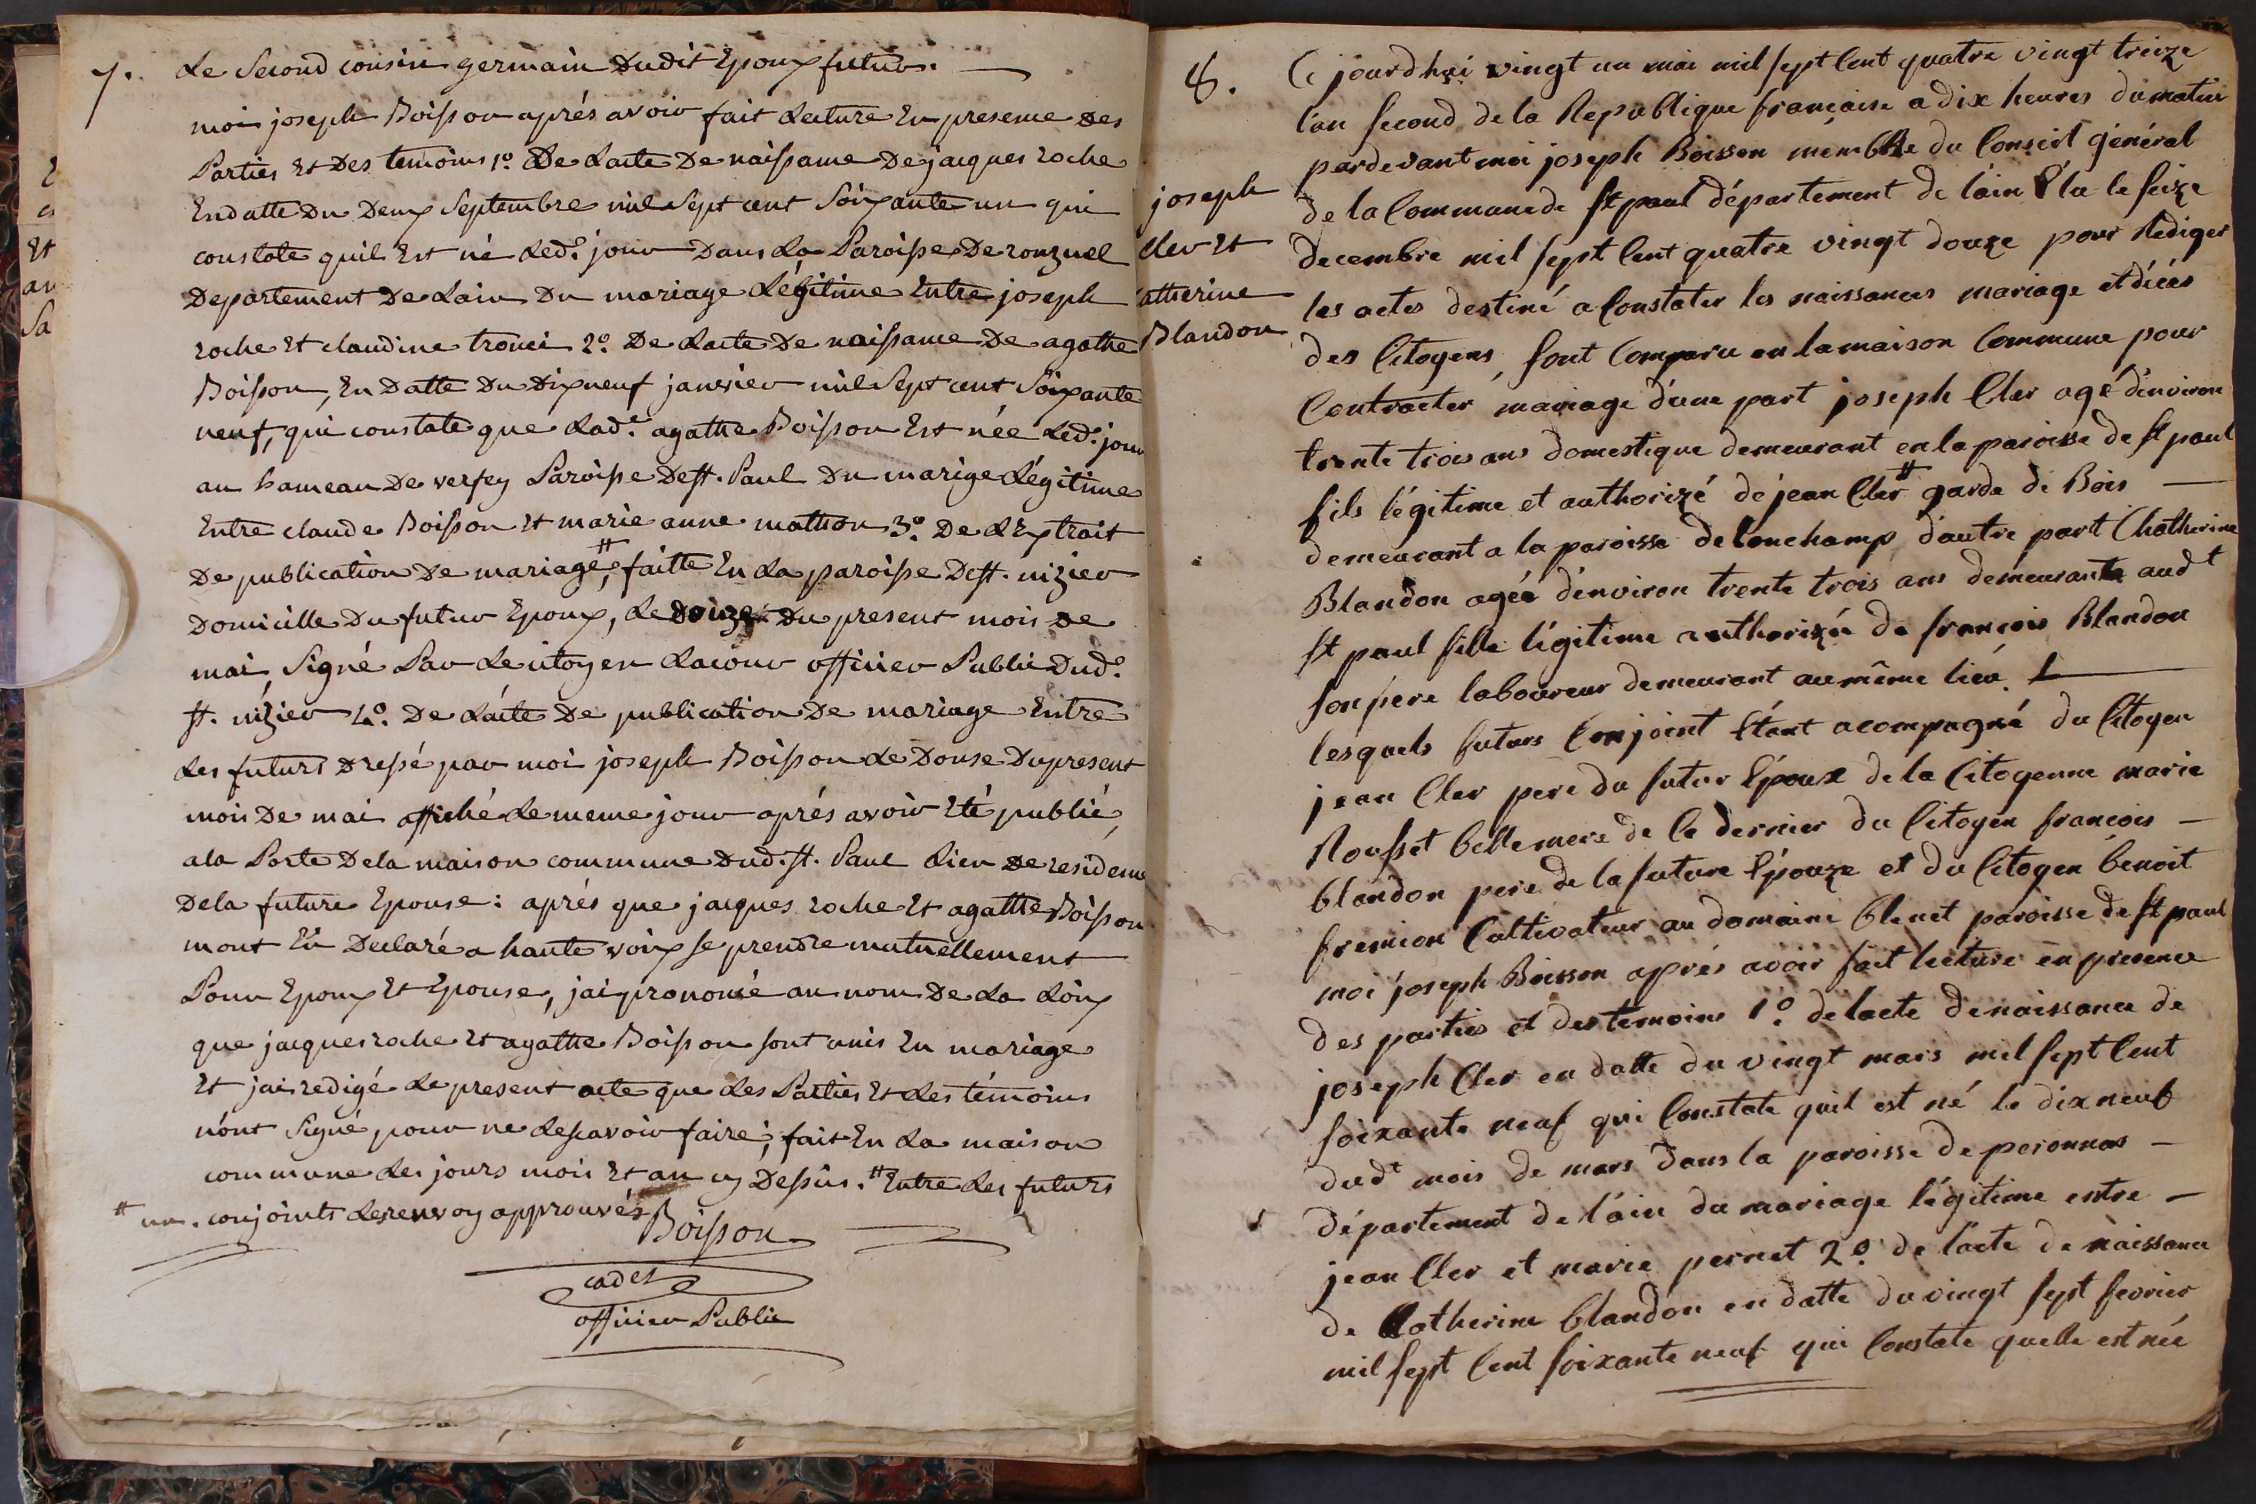 7.
Le Second cousin germain Dudit Epoux futur.
moi joseph Boisson aprés avoir fait Lecture En presence des
Parties Et Des temoins 1º. De Lacte De naissance De jacques roche
En datte Du Deux Septembre mil Sept cent Soixante un qui
constate quil Est né Led. jour Dans La Paroisse De ronzuel
Departement De Lain Du mariage Légitime Entre joseph
roche Et claudine 2º. De Lacte De naissance De agathe
Boisson, En Datte Du Dixneuf janvier mil Sept cent Soixante
neuf, qui constate que Lad.e agathe Boisson Est née Led. jour
au hameau De verfey Paroisse De st. Paul Du marige Légitime
Entre claude Boisson Et marie anne mathon 3º. De LExtrait
De publication De mariage, # faitte En La paroisse De st. nizier
Domicille Du futur Epoux, Le douze Du present mois de
mai, Signé Par Le citoyen Lacour officier Public Dud.
st. nizier 4º. De Lácte De publication De mariage Entre
Les futurs Dressé par moi joseph Boisson Le Douse Du present
mois De mai affiché Le meme jour aprés avoir Eté publié,
a la Porte De la maison commune Dud. st. Paul Lieu De residence
De la future Epouse : aprés que jacques roche Et agathe Boisson
mont Eû Declaré a haute voix se prendre mutuellement
Pour Epoux Et Epouse, jai prononcé au nom De La Loix
que jacques roche Et agathe Boisson sont unis En mariage
Et jai redigé Le present acte que Les Parties Et Les témoins
n'ont Signé pour ne Lescavoir faire ; fait En La maison
commune Les jours mois Et an cy Dessus. # Entre Les futurs
# conjoints Les renvoy approuvés
Boisson
cadet
officier Public
8.
joseph
cler Et
catherine
Blandon
Ce jourdhui vingt un mai mil sept Cent quatre vingt treize
l'an second de la Republique française a dix heures du matin
pardevant moi joseph Boisson mémbre du Conseil général
de la Commune de st paul département de láin Elu le seize
decembre mil sept Cent quatre vingt douze pour Rédiger
les actes destiné a Constater les naissances mariage et décés
des Citoyens, sont Comparu en la maison Commune pour
Contracter mariage d'une part joseph Cler agé d'environ
trente trois ans domestique demeurant en la paroisse de st paul
fils légitime et authorizé de jean Cler # garde de Bois
demeurant a la paroisse de lonchamp d'autre part Chatherine
Blandon agéé d'environ trente trois ans demeurante aud t
st paul fille légitime authorizée de françois Blandon
son pere laboureur demeurant au même lieu.
lesquels futurs Conjoint Etant acompagné du Citoyen
jean Cler pere du futur Epoux de la Citoyenne marie
Rousset bellemere de le dernier du Citoyen françois
blandon pere de la future Epouze et du Citoyen benoit
fremion Cultivateur au domaine blenet paroisse de st paul
moi joseph Boisson aprés avoir fait lecture en presence
des parties et des temoins 1º. de lacte de naissance de
joseph Cler en datte du vingt mars mil sept Cent
soixante neuf qui Constate quil est né le dix neuf
dud t mois de mars dans la paroisse de peronnas
département de láin du mariage légitime entre
jean Cler et marie pernet 2º. de l'acte de naissance
de Catherine blandon en datte du vingt sept fevrier
mil sept Cent soixante neuf qui Constate quelle est née